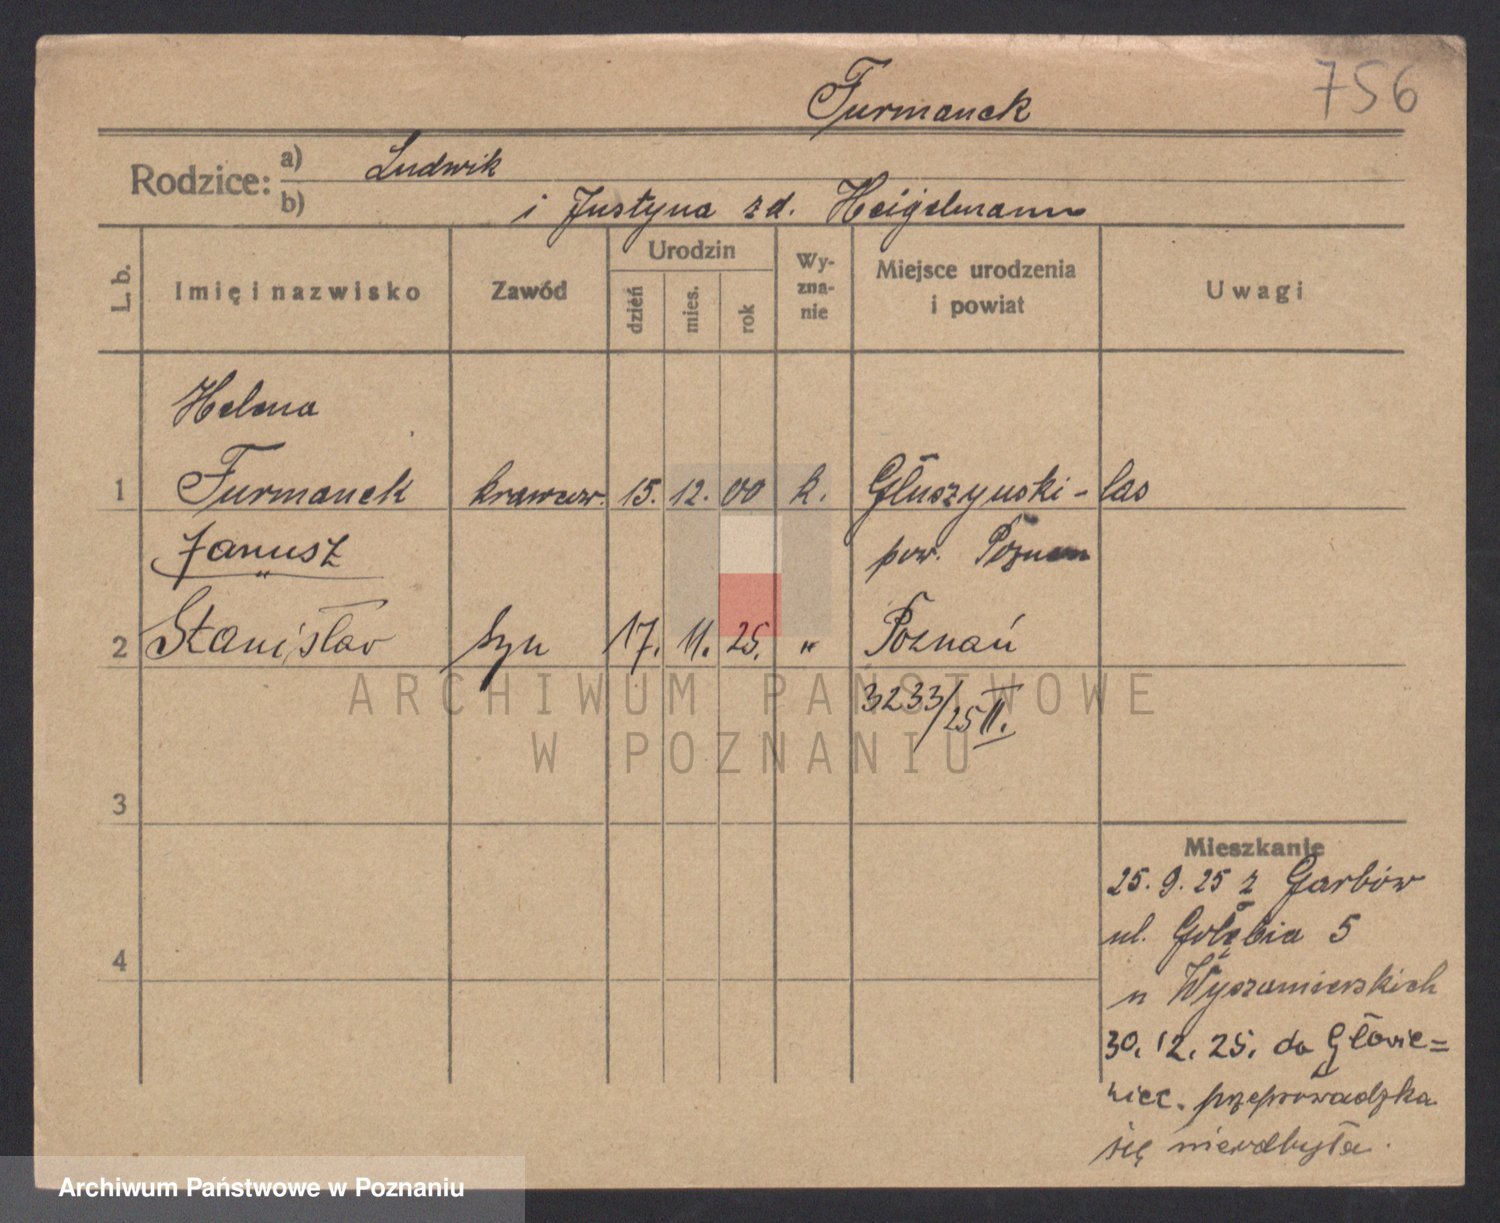 756
Furmanek
Rodzice: a) Ludwik
b) i Justyna zd. Heigelmann
L. b.
Imię i nazwisko
Zawód
Urodzin
dzień
mies.
rok
Wy-
zna-
nie
Miejsce urodzenia
i powiat
Uwagi
Helena
1 Furmanek krawcow. 15. 12. 00 k. Głuszynski-las
Janusz pow. Poznań
2 Stanisław syn 17. 11. 25. " Poznań
3233/25 II.
3
4
Mieszkanie
25. 9. 25 z Garbów
ul. Gołębia 5
u Wyszamierskich
30. 12. 25. do Głowie=
niec. przeprowadzka
się nieodbyła.
ARCHIWUM PAŃSTWOWE
W POZNANIU
Archiwum Państwowe w Poznaniu